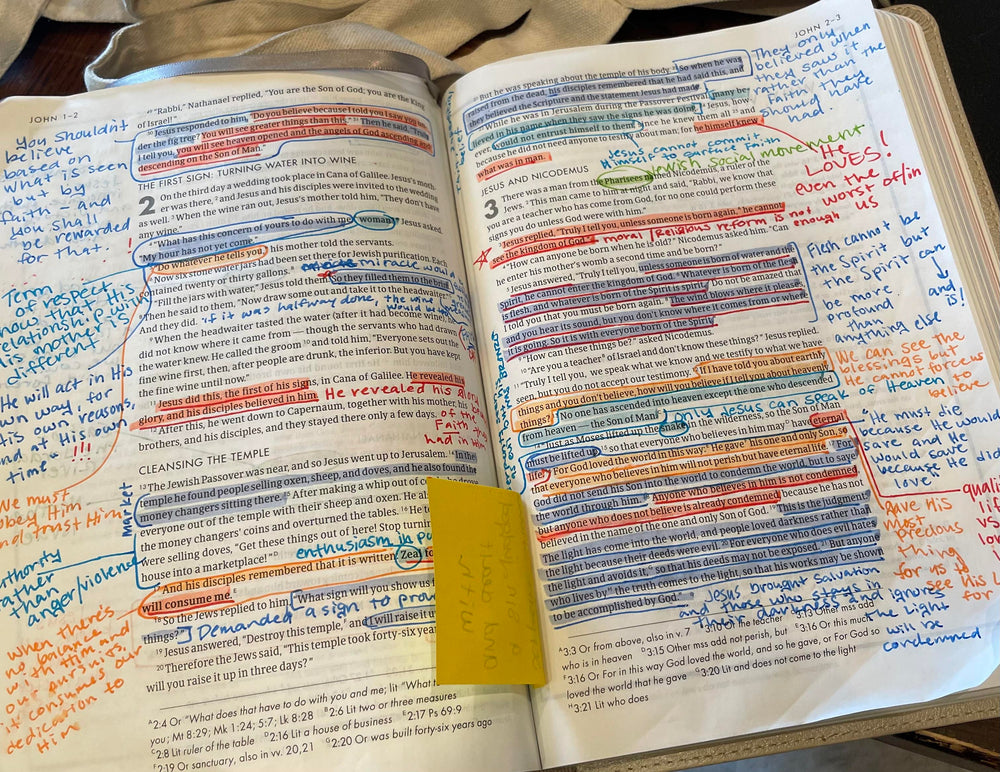 JOHN 1–2
49 "Rabbi," Nathanael replied, "You are the Son of God; you are the King
of Israel!"
50 Jesus responded to him, "Do you believe because I told you I saw you
under the fig tree? You will see greater things than this." 51 Then he said, "Truly
I tell you, you will see heaven opened and the angels of God ascending and
descending on the Son of Man."
THE FIRST SIGN: TURNING WATER INTO WINE
2 On the third day a wedding took place in Cana of Galilee. Jesus's moth-
er was there, 2 and Jesus and his disciples were invited to the wedding
as well. 3 When the wine ran out, Jesus's mother told him, "They don't have
any wine."
4 "What has this concern of yours to do with me, woman?" Jesus asked.
"My hour has not yet come."
5 "Do whatever he tells you," his mother told the servants.
6 Now six stone water jars had been set there for Jewish purification. Each
contained twenty or thirty gallons.
7 "Fill the jars with water," Jesus told them. So they filled them to the brim.
8 Then he said to them, "Now draw some out and take it to the headwaiter."
And they did.
9 When the headwaiter tasted the water (after it had become wine),
did not know where it came from — though the servants who had drawn
the water knew. He called the groom 10 and told him, "Everyone sets out the
fine wine first, then, after people are drunk, the inferior. But you have kept
the fine wine until now."
11 Jesus did this, the first of his signs, in Cana of Galilee. He revealed his
glory, and his disciples believed in him.
12 After this, he went down to Capernaum, together with his mother, his
brothers, and his disciples, and they stayed there only a few days.
CLEANSING THE TEMPLE
13 The Jewish Passover was near, and so Jesus went up to Jerusalem. 14 In the
temple he found people selling oxen, sheep, and doves, and he also found the
money changers sitting there. 15 After making a whip out of
everyone out of the temple with their sheep and oxen. He also
the money changers' coins and overturned the tables. 16 He
were selling doves, "Get these things out of here! Stop turning
house into a marketplace!"
17 And his disciples remembered that it is written: Zeal for
will consume me.
18 So the Jews replied to him, "What sign will you show us
things?"
19 Jesus answered, "Destroy this temple, and I will raise it up
20 Therefore the Jews said, "This temple took forty-six years
will you raise it up in three days?"
A 2:4 Or "What does that have to do with you and me; lit "What
you; Mt 8:29; Mk 1:24; 5:7; Lk 8:28 B 2:6 Lit two or three measures
C 2:8 Lit ruler of the table D 2:16 Lit a house of business E 2:17 Ps 69:9
F 2:19 Or sanctuary, also in vv. 20,21 G 2:20 Or was built forty-six years ago
You shouldn't
believe
based on
what is seen
but by
faith - and
you shall
be rewarded
for that.
Term
of respect,
now that His
relationship with
His mother is
different
He will act in His
own way, for
His own reasons,
and at His own
time !!!
We must
obey Him
and trust Him
Market
authority
rather
than
anger/violence
When there's
no balance
with time and
our pursuits,
it consumes our
dedication to
Him
miracle would
if it was halfway done, the wine would
He revealed His glory
of the
Faith
had in
enthusiasm in
Demanded a sign to prove
JOHN 2–3
21 But he was speaking about the temple of his body. 22 So when he was
raised from the dead, his disciples remembered that he had said this, and
they believed the Scripture and the statement Jesus had made.
23 While he was in Jerusalem during the Passover Festival, many be-
lieved in his name when they saw the signs he was doing. 24 Jesus, how-
ever, would not entrust himself to them, since he knew them all 25 and
because he did not need anyone to testify about man; for he himself knew
what was in man.
JESUS AND NICODEMUS
3 There was a man from the Pharisees named Nicodemus, a ruler of the
Jews. 2 This man came to him at night and said, "Rabbi, we know that
you are a teacher who has come from God, for no one could perform these
signs you do unless God were with him."
3 Jesus replied, "Truly I tell you, unless someone is born again, he cannot
see the kingdom of God."
4 "How can anyone be born when he is old?" Nicodemus asked him. "Can
enter his mother's womb a second time and be born?"
5 Jesus answered, "Truly I tell you, unless someone is born of water and the
Spirit, he cannot enter the kingdom of God. 6 Whatever is born of the flesh
is flesh, and whatever is born of the Spirit is spirit. 7 Do not be amazed that
I told you that you must be born again. 8 The wind blows where it pleases,
and you hear its sound, but you don't know where it comes from or where
it is going. So it is with everyone born of the Spirit."
9 "How can these things be?" asked Nicodemus.
10 "Are you a teacher of Israel and don't know these things?" Jesus replied.
11 "Truly I tell you, we speak what we know and we testify to what we have
seen, but you do not accept our testimony. 12 If I have told you about earthly
things and you don't believe, how will you believe if I tell you about heavenly
things? 13 No one has ascended into heaven except the one who descended
from heaven — the Son of Man.
14 "Just as Moses lifted up the snake in the wilderness, so the Son of Man
must be lifted up, 15 so that everyone who believes in him may have eternal
life. 16 For God loved the world in this way: He gave his one and only Son, so
that everyone who believes in him will not perish but have eternal life. 17 For
God did not send his Son into the world to condemn the world, but to save
the world through him. 18 Anyone who believes in him is not condemned,
but anyone who does not believe is already condemned, because he has not
believed in the name of the one and only Son of God. 19 This is the judgment:
The light has come into the world, and people loved darkness rather than
the light because their deeds were evil. 20 For everyone who does evil hates
the light and avoids it, so that his deeds may not be exposed. 21 But anyone
who lives by the truth comes to the light, so that his works may be shown
to be accomplished by God."
A 3:3 Or from above, also in v. 7 3:10 Or the teacher 3:13 Other mss add
who is in heaven 3:15 Other mss add not perish, but 3:16 Or this much
3:16 Or For in this way God loved the world, and so he gave, or For God so
loved the world that he gave 3:20 Lit and does not come to the light
3:21 Lit who does
They only
believed when
they saw it
rather than the
faith they
should have
Jesus cannot commit
Himself to surface faith
Jewish social movement
He
LOVES!
even the
worst of/in
us
moral/Religious reform is not
enough
flesh cannot be
the Spirit but
the Spirit can
be more and
profound is!
than
anything else
We can see the
blessings but
He cannot force
us to believe
only Jesus can speak of Heaven
because He would
die because He would
save and He did
because He
love
Gave His
most
precious
thing
for us to
see His
for
Jesus brought salvation
and those who stays in
their darkness and ignores
the light
will be
condemned